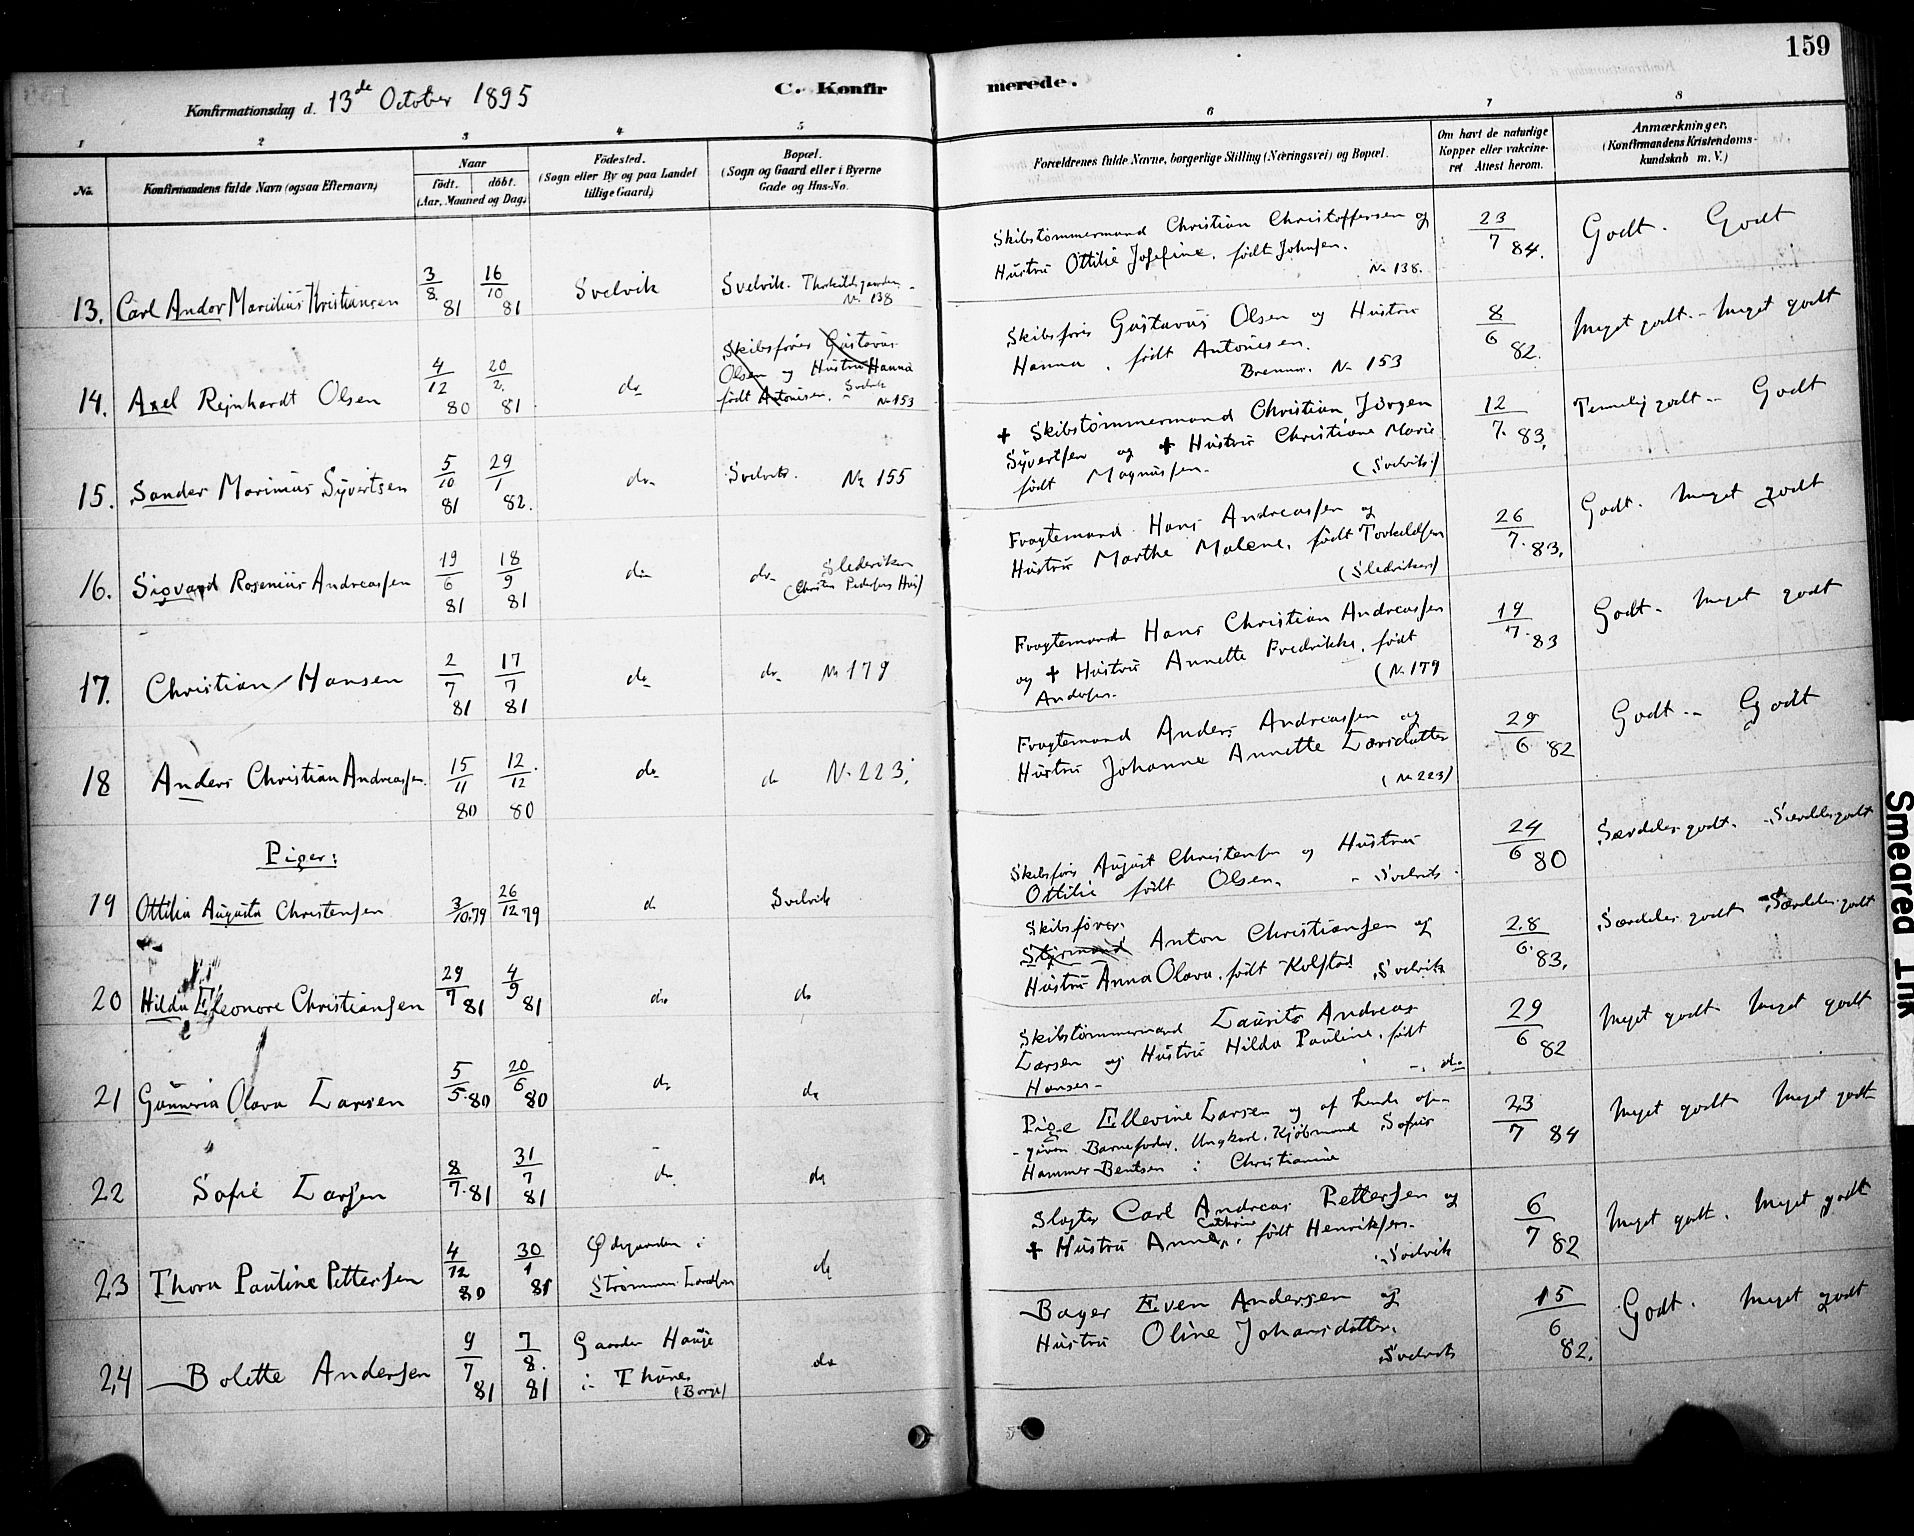 159
Konfirmationsdag d. 13de October 1895
C. Konfir
merede.
1 2 3 4 5 6 7 8
No. Konfirmandens fulde Navn (ogsaa Efternavn) Naar født. døbt. (Aar, Maaned og Dag)
Fødested. (Sogn eller By og paa Landet tillige Gaard)
Bopæl. (Sogn og Gaard eller i Byerne Gade og Hus-No.
Forældrenes fulde Navne, borgerlige Stilling (Næringsvei) og Bopæl.
Om havt de naturlige Kopper eller vakcineret Attest herom.
Anmærkninger. (Konfirmandens Kristendomskundskab m. V.)
13. Carl Andor Marcilius Kristiansen 3/8 81 16/10 81 Svelvik Svelvik. No 138
Skibstømmermand Christian Christoffersen og
Hustru Ottilie Josefine, født Johnsen.
No 138.
23/7 84. Godt. Godt
14. Axel Reinhardt Olsen 4/12 80 20/2. 81 do
Skibsfører Gustavus
Olsen og Hustru Hanna
født Antonisen. Svelvik
No 153
Skibsfører Gustavus Olsen og Hustru
Hanna, født Antonisen.
No 153
8/6 82. Meget godt. - Meget godt
15. Sander Marinius Syvertsen 5/10 81 29/1 82. do Svelvik. No 155
+ Skibstømmermand Christian Jørgen
Syvertsen og + Hustru Christiane Marie
født Magnussen. (Svelvik)
12/7. 83, Temmelig godt - Godt
16. Sigvard Rosenius Andreassen 19/6 81 18/9 81 do do Sledeviken
(Christen Pedersens Hus)
Fragtemand Hans Andreassen og
Hustru Marthe Malene, født Torkeldsen
(Sledviken)
26/7. 83, Godt. Meget godt
17. Christian Hansen 2/7 81 17/7 81 do do No 179
Fragtemand Hans Christian Andreassen
og + Hustru Annette Fredrikke, født
Andersen. (No 179
19/7. 83 Godt. Meget godt
18 Anders Christian Andreassen 15/11 80 12/12 80 do do No 223.
Fragtemand Anders Andreassen og
Hustru Johanne Annette Larsdatter
(No 223)
29/6 82 Godt. - Godt
Piger:
19 Ottilia Augusta Christensen 3/10 79 26/12 79 do Svelvik
Skibsfører August Christensen og Hustru
Ottilie født Olsen. - Svelvik
24/6 80 Særdeles godt. - Særdeles godt
20 Hilda Eleonore Christiansen 29/7 81 4/9 81 do do
Skibsfører
Styrmand Anton Christiansen og
Hustru Anna Olava, født Kolstad Svelvik
28/6. 83, Særdeles godt - Særdeles godt
21 Gunneria Olava Larsen 5/5. 80 20/6 80 do do
Skibstømmermand Laurits Andreas
Larsen og Hustru Hilda Pauline, født
Hansen - do
29/6 82 Meget godt Meget godt
22 Sofie Larsen 8/7. 81 31/7 81 do do
Pige Ellevine Larsen og af hende op-
given Barnefader, Ungkarl, Kjøbmand Sofus
Hammer-Bentsen i Christiania
23/7 84 Meget godt Meget godt
23 Thora Pauline Pettersen 4/12 80 30/1 81 Ødegaarden i
Strømm do
Slagter Carl Andreas Pettersen og
+ Hustru Anne Cathrine, født Henriksen.
Svelvik
6/7 82 Meget godt. Meget godt
24 Bolette Andersen 9/7 81 7/8. 81 Gaarden Hauge
i Thunes
(Borge) do
Bager Even Andersen og
Hustru Oline Johansdatter.
Svelvik
15/6 82. Godt. Meget godt
Smeared Ink